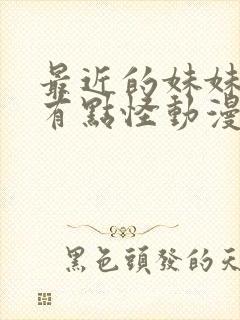 最近的妹妹
有點怪動漫
黑色頭發的天